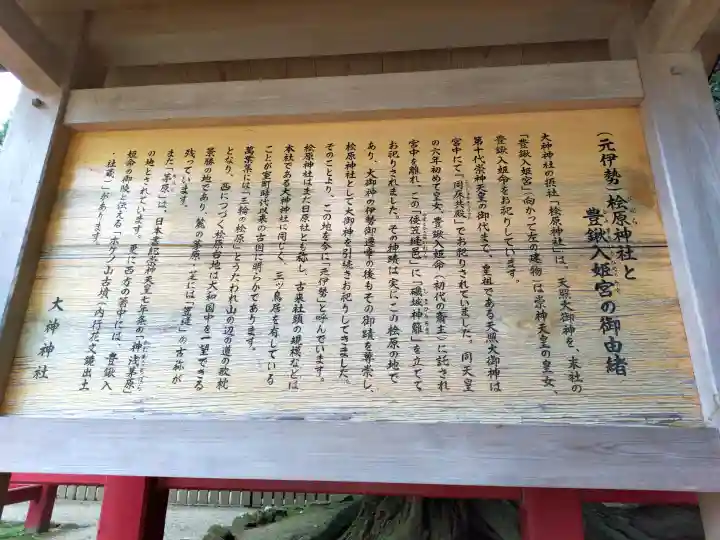 (元伊勢)桧原神社と
豊鍬入姫宮の御由緒
大神神社の摂社「桧原神社」は、天照大御神を、末社の
「豊鍬入姫宮」(向かって左の建物)は崇神天皇の皇女、
豊鍬入姫命をお祀りしています。
第十代崇神天皇の御代まで、皇祖である天照大御神は
宮中にて「同床共殿」でお祀りされていました。同天皇
の六年初めて皇女、豊鍬入姫命(初代の斎王)に託され
宮中を離れ、この「倭笠縫邑」に「磯城神籬」を立てて
お祀りされました。その神蹟は実にこの桧原の地で
あり、大御神の伊勢御遷幸の後もその御蹟を尊崇し、
桧原神社として大御神を引続きお祀りしてきました。
そのことより、この地を今に「元伊勢」と呼んでいます。
桧原神社はまた日原社とも称し、古来社頭の規模などは
本社である大神神社に同じく、三ツ鳥居を有している
ことが室町時代以来の古図に明らかであります。
萬葉集には「三輪の桧原」とうたわれ山の辺の道の歌枕
となり、西につづく桧原台地は大和国中を一望できる
景勝の地であり、麓の茅原・芝には「笠縫」の古称が
残っています。
また「茅原」は、日本書紀崇神天皇七年条の「神浅茅原」
の地とされています。更に西方の箸中には、「豊鍬入
姫命の御陵」と伝える「ホケノ山古墳(内行花文鏡出土
・社蔵)」があります。
大神神社